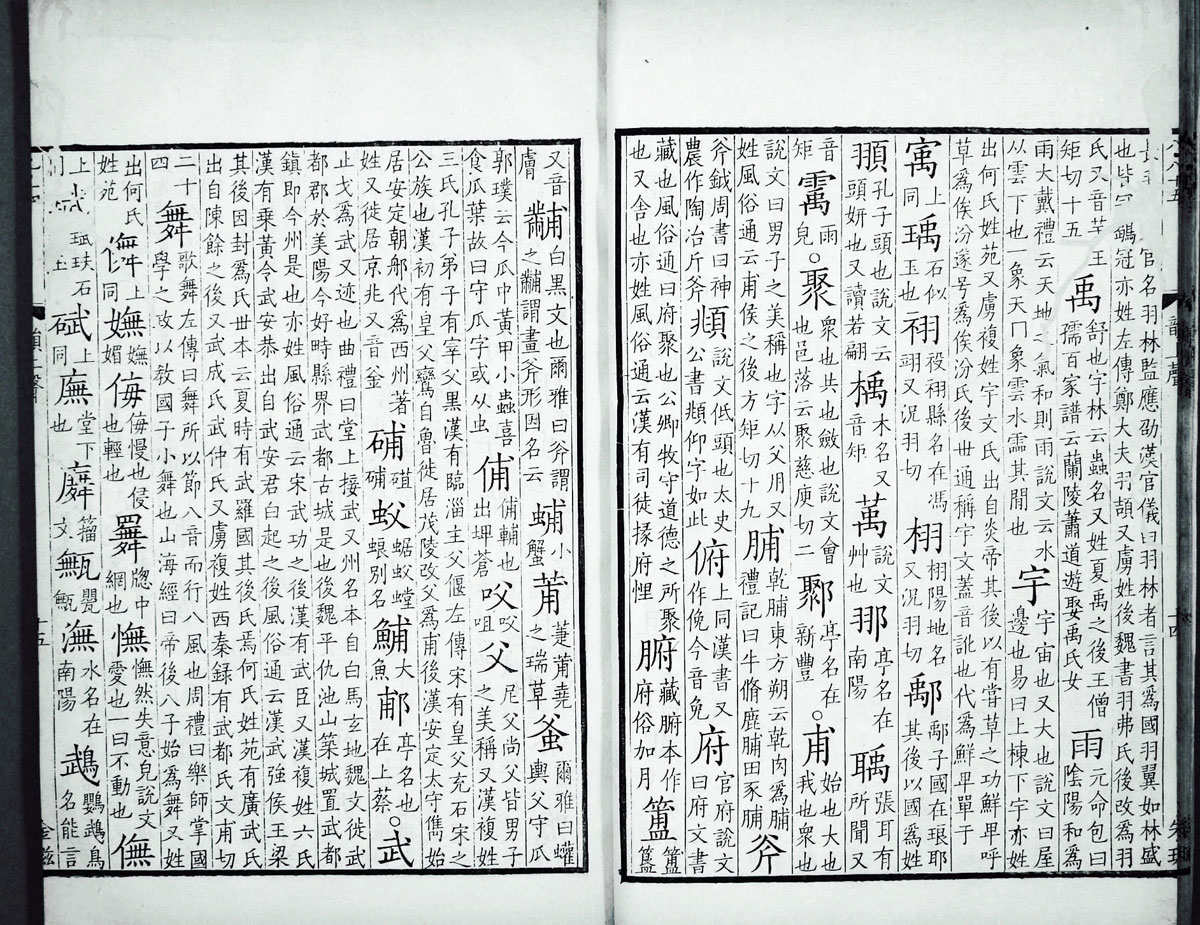 官名羽林監應劭漢官儀曰羽林者言其爲國羽翼如林盛
也皆冠鶡冠亦姓左傳鄭大夫羽頡又虜姓後魏書羽弗氏後改爲羽
氏又音芋王矩切十五禹舒也字林云蟲名又姓夏禹之後王僧孺百家譜云蘭陵蕭道遊娶禹氏女雨元命包曰陰陽和爲
雨大戴禮云天地之氣和則雨說文云水以雲下也象天冂象雲水霝其閒也宇宇宙也又大也說文曰屋邊也易曰上棟下宇亦姓
出何氏姓苑又虜複姓宇文氏出自炎帝其後以有嘗草之功鮮卑呼草爲俟汾遂号爲俟汾氏後世通稱宇文蓋音訛也代爲鮮卑單于
㝢上同瑀石似玉也祤役祤縣名在馮翊又況羽切栩栩陽地名又況羽切鄅鄅子國在琅耶其後以國爲姓
頨孔子頭也說文云頭妍也又讀若翩楀木名又音矩萭說文艸也𨛭亭名在南陽聥張耳有所聞又
音矩䨞雨皃○聚衆也共也斂也說文會也邑落云聚慈庾切二鄹亭名在新豐○甫始也大也我也衆也
說文曰男子之美稱也字从父用又姓風俗通云甫侯之後方矩切十九脯乾脯東方朔云乾肉爲脯禮記曰牛脩鹿脯田豕脯斧
斧鉞周書曰神農作陶冶斤斧頫說文低頭也太史公書頫仰字如此俯上同漢書又作俛今音免府官府說文曰府文書
藏也風俗通曰府聚也公卿牧守道德之所聚也又舍也亦姓風俗通云漢有司徒掾府悝腑藏腑本作府俗加月簠簠簋
又音膚黼白黑文也爾雅曰斧謂之黼謂畫斧形因名云蜅小蟹莆萐莆堯之瑞草䗕爾雅曰蠸輿父守瓜
郭璞云今瓜中黃甲小蟲喜食瓜葉故曰守瓜字或从虫俌俌輔也出埤蒼㕮㕮咀父尼父尚父皆男子之美稱又漢複姓
三氏孔子弟子有宰父黑漢有臨淄主父偃左傳宋有皇父充石宋之公族也漢初有皇父鸞自魯徙居茂陵改父爲甫後漢安定太守儁始
居安定朝那代爲西州著姓又徙居京兆又音釜䃽䃽碃蚥蟾蚥螗蜋別名鯆大魚郙亭名在上蔡○武
止戈爲武又迹也曲禮曰堂上接武又州名本自白馬玄地魏文徙武都郡於美陽今好畤縣界武都古城是也後魏平仇池山築城置武都
鎮即今州是也亦姓風俗通云宋武功之後漢有武臣又漢複姓六氏漢有乗黃令武安恭出自武安君白起之後風俗通云漢武強侯王梁
其後因封爲氏世本云夏時有武羅國其後氏焉何氏姓苑有廣武氏出自陳餘之後又武成氏武仲氏又虜複姓西秦錄有武都氏文甫切
二十四舞歌舞左傳曰舞所以節八音而行八風也周禮曰樂師掌國學之政以教國子小舞也山海經曰帝後八子始爲舞又姓
出何氏姓苑儛上同嫵嫵媚侮侮慢也侵也輕也𦌬牕中網也憮憮然失意皃說文愛也一曰不動也㒇
上同珷珷玞石碔上同廡堂下也䍢籀文甒甖甒潕水名在南陽鵡鸚鵡鳥名能言